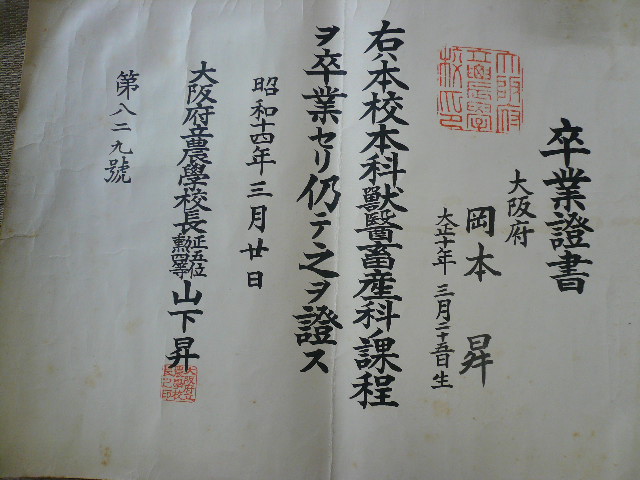 卒業證書
大阪府
岡本昇
大正十年三月二十五日生
大阪府
立農學
校之印
右ハ本校本科獸醫畜産科ノ課程
ヲ卒業セリ仍テ之ヲ證ス
昭和十四年三月廿日
大阪府立農學校長正五位勳四等山下昇
第八二九號